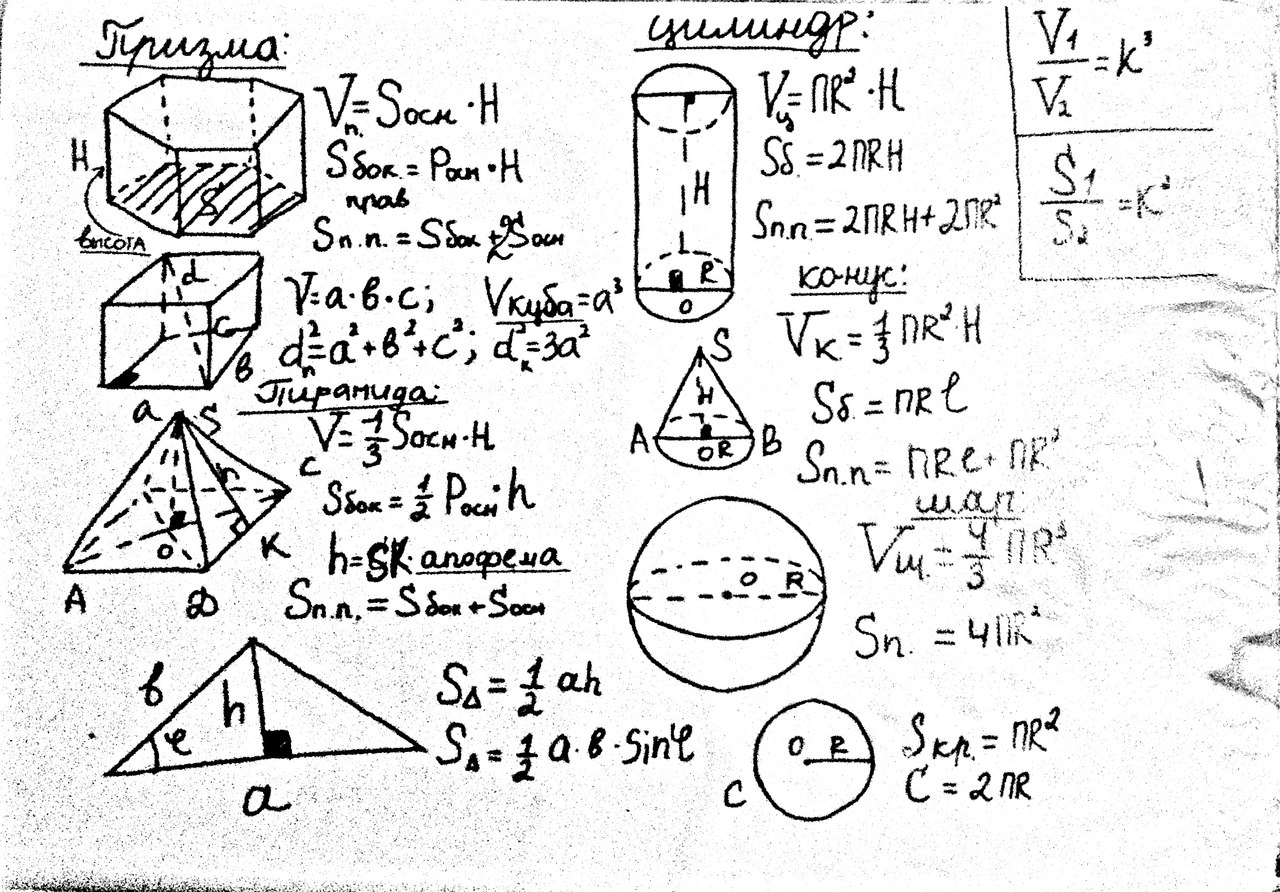 Призма:
H
высота
S
Vп. = Sосн · H
Sбок = Pосн · H
прав
Sп.п. = Sбок + 2Sосн
d
c
в
a
V = a · в · c; Vкуба = a³
dп² = a² + в² + c²; dк² = 3a²
Пирамида:
S
h
C
O
K
A
D
V = 1/3 Sосн · H
Sбок = 1/2 Pосн · h
h = SK · апофема
Sп.п. = Sбок + Sосн
в
h
φ
a
SΔ = 1/2 ah
SΔ = 1/2 a · в · sinφ
цилиндр:
H
R
O
Vц = ПR² · H
Sб. = 2ПRH
Sп.п. = 2ПRH + 2ПR²
конус:
S
H
A
O R
B
Vк. = 1/3 ПR² · H
Sб. = ПRl
Sп.п = ПRl + ПR²
шар:
O R
Vш. = 4/3 ПR³
Sп. = 4ПR²
O R
C
Sкр. = ПR²
C = 2ПR
V1/V2 = K³
S1/S2 = K²